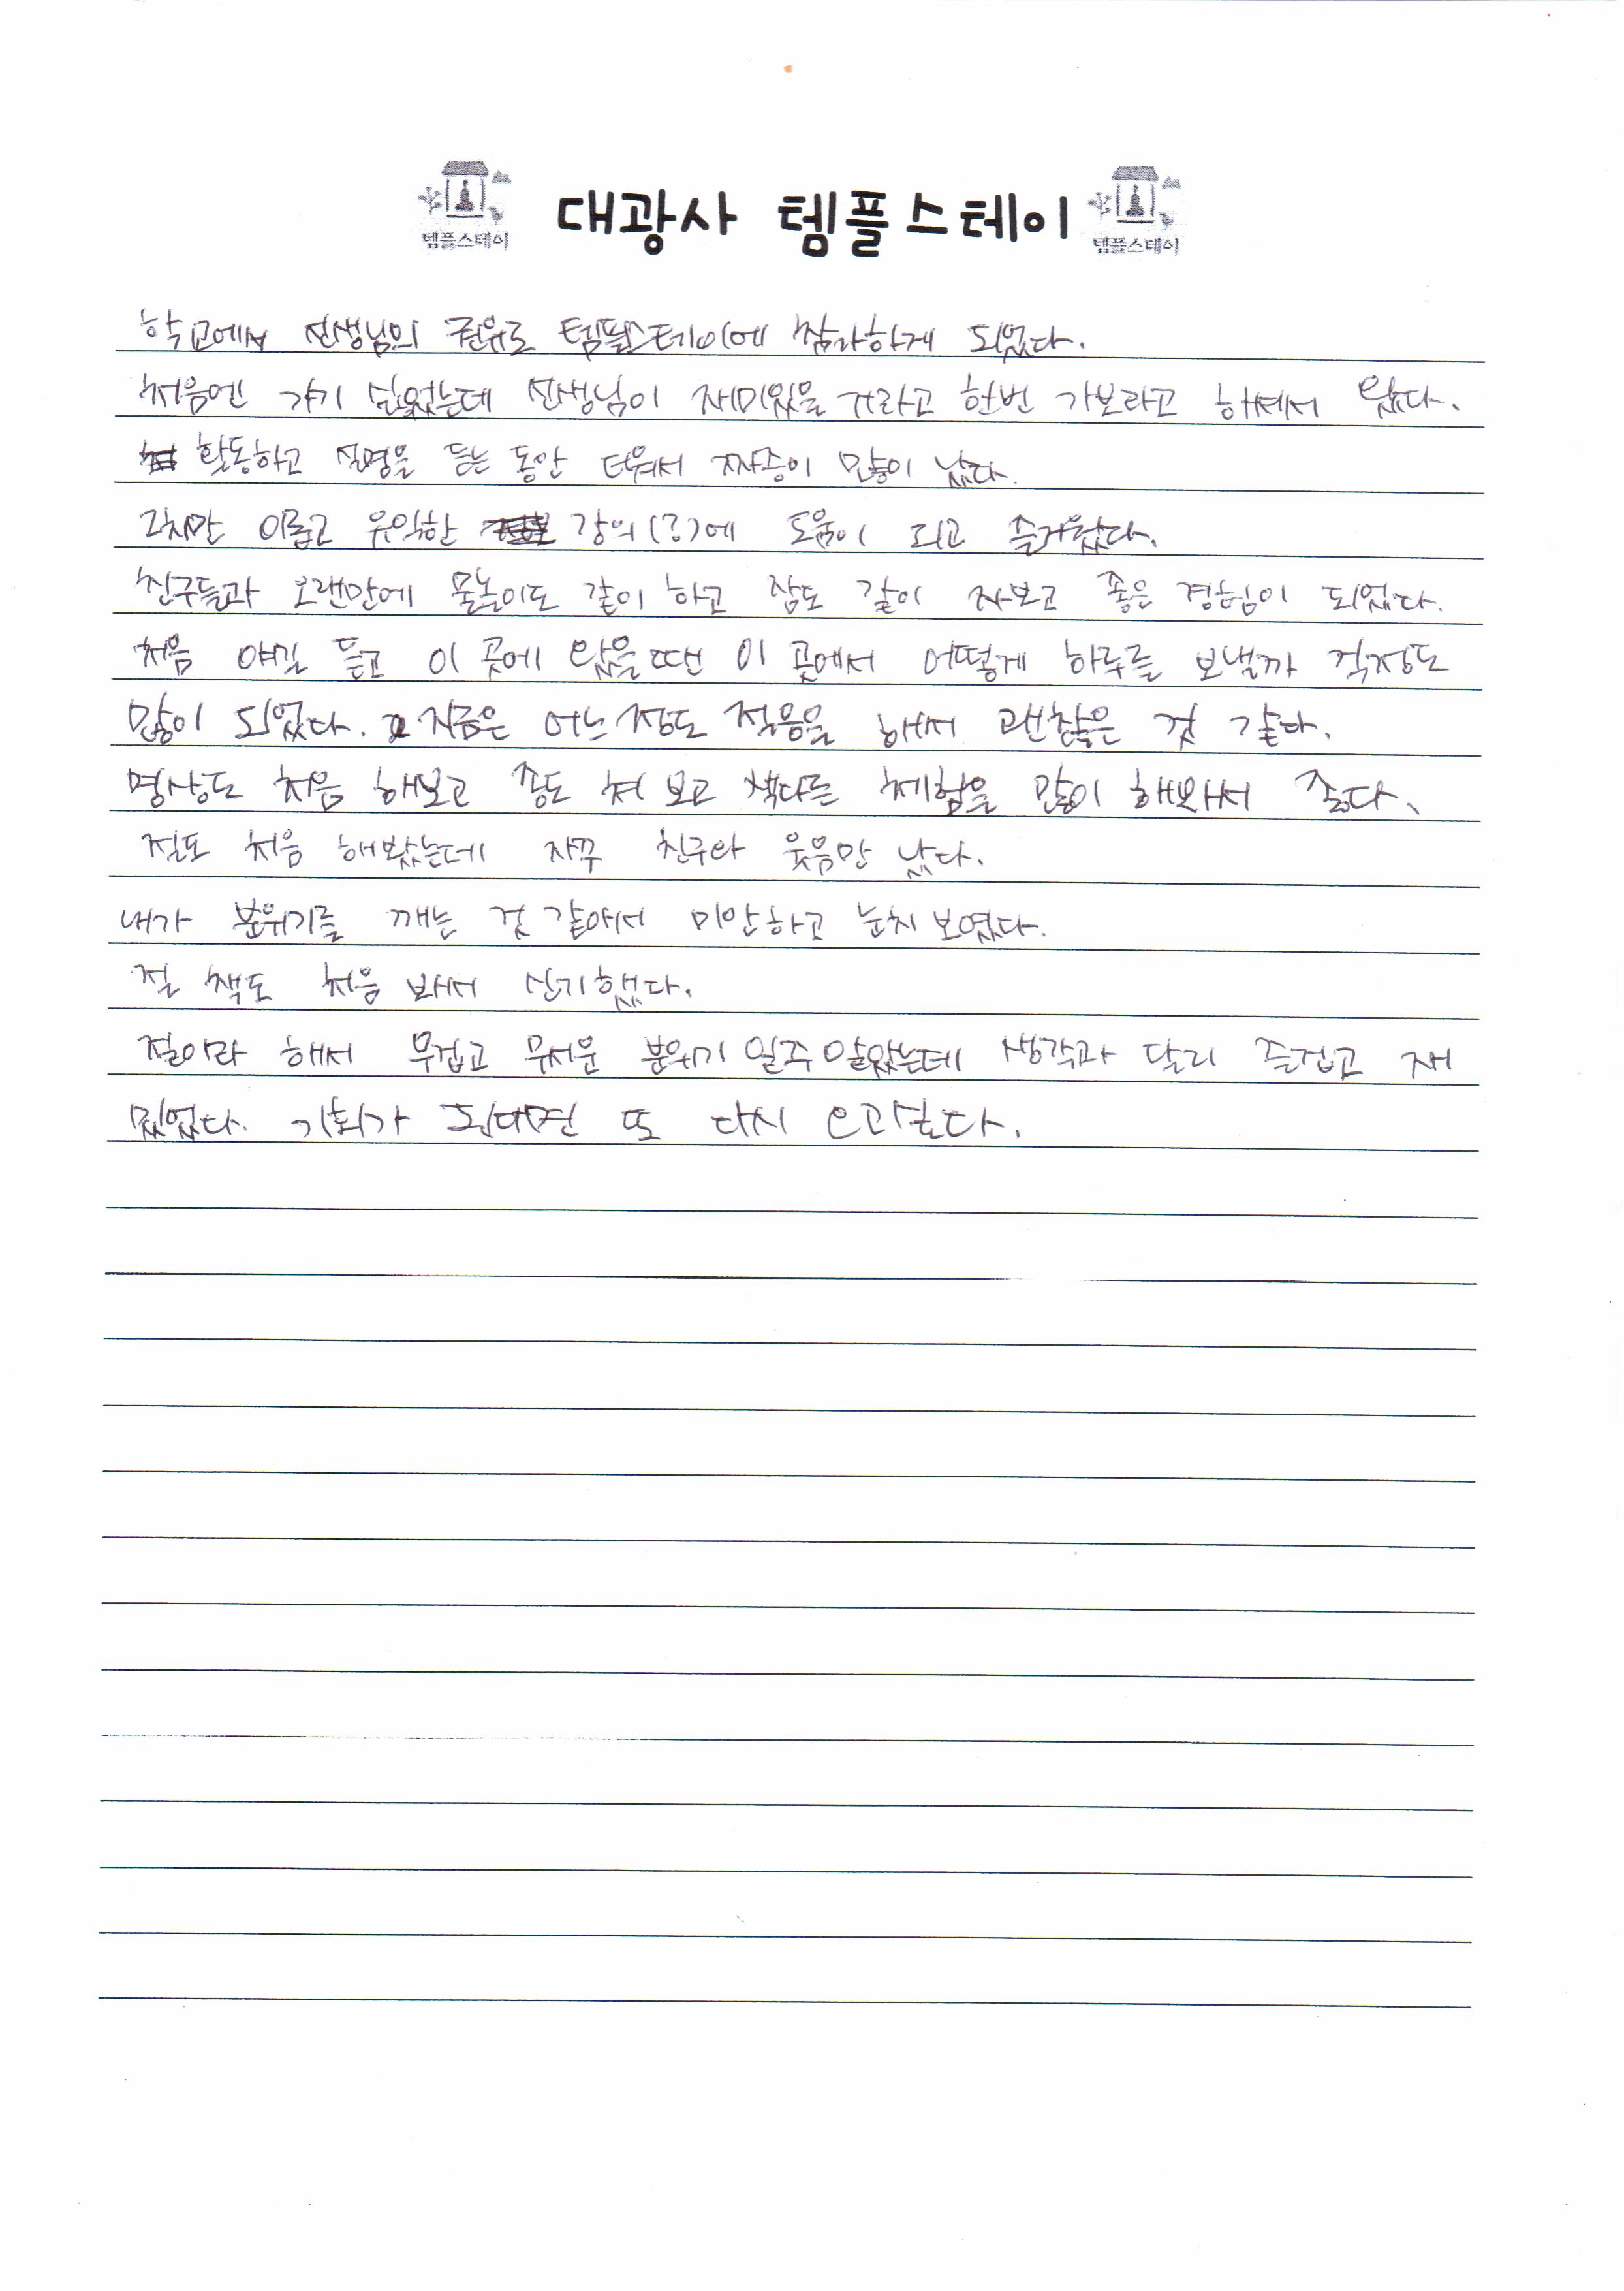 템플스테이 대광사 템플스테이 템플스테이
학교에서 선생님의 권유로 템플스테이에 참가하게 되었다.
처음엔 가기 싫었는데 선생님이 재미있을 거라고 한번 가보라고 하셔서 왔다.
활동하고 설명을 듣는 동안 더워서 짜증이 많이 났다.
그치만 이롭고 유익한 강의(?)에 도움이 되고 즐거웠다.
친구들과 오랜만에 물놀이도 같이 하고 잠도 같이 자보고 좋은 경험이 되었다.
처음 얘길 듣고 이 곳에 왔을땐 이 곳에서 어떻게 하루를 보낼까 걱정도
많이 되었다. 지금은 어느정도 적응을 해서 괜찮은 것 같다.
명상도 처음 해보고 종도 쳐 보고 색다른 체험을 많이 해봐서 좋다.
절도 처음 해봤는데 자꾸 친구와 웃음만 났다.
내가 분위기를 깨는 것 같애서 미안하고 눈치 보였다.
절 책도 처음 봐서 신기했다.
절이라 해서 무겁고 무서운 분위기 일주 알았는데 생각과 달리 즐겁고 재
밌었다. 기회가 된다면 또 다시 오고싶다.